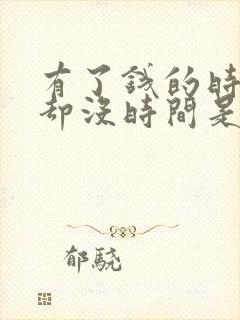 有了錢的時
却沒時間是
郁驍